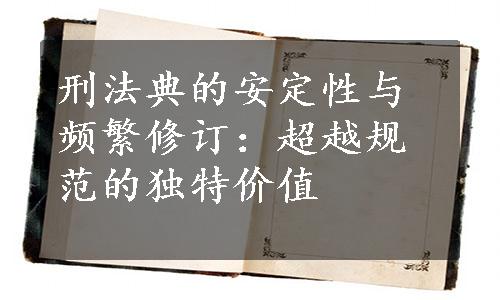 刑法典的安定性与
频繁修订：超越规
范的独特价值